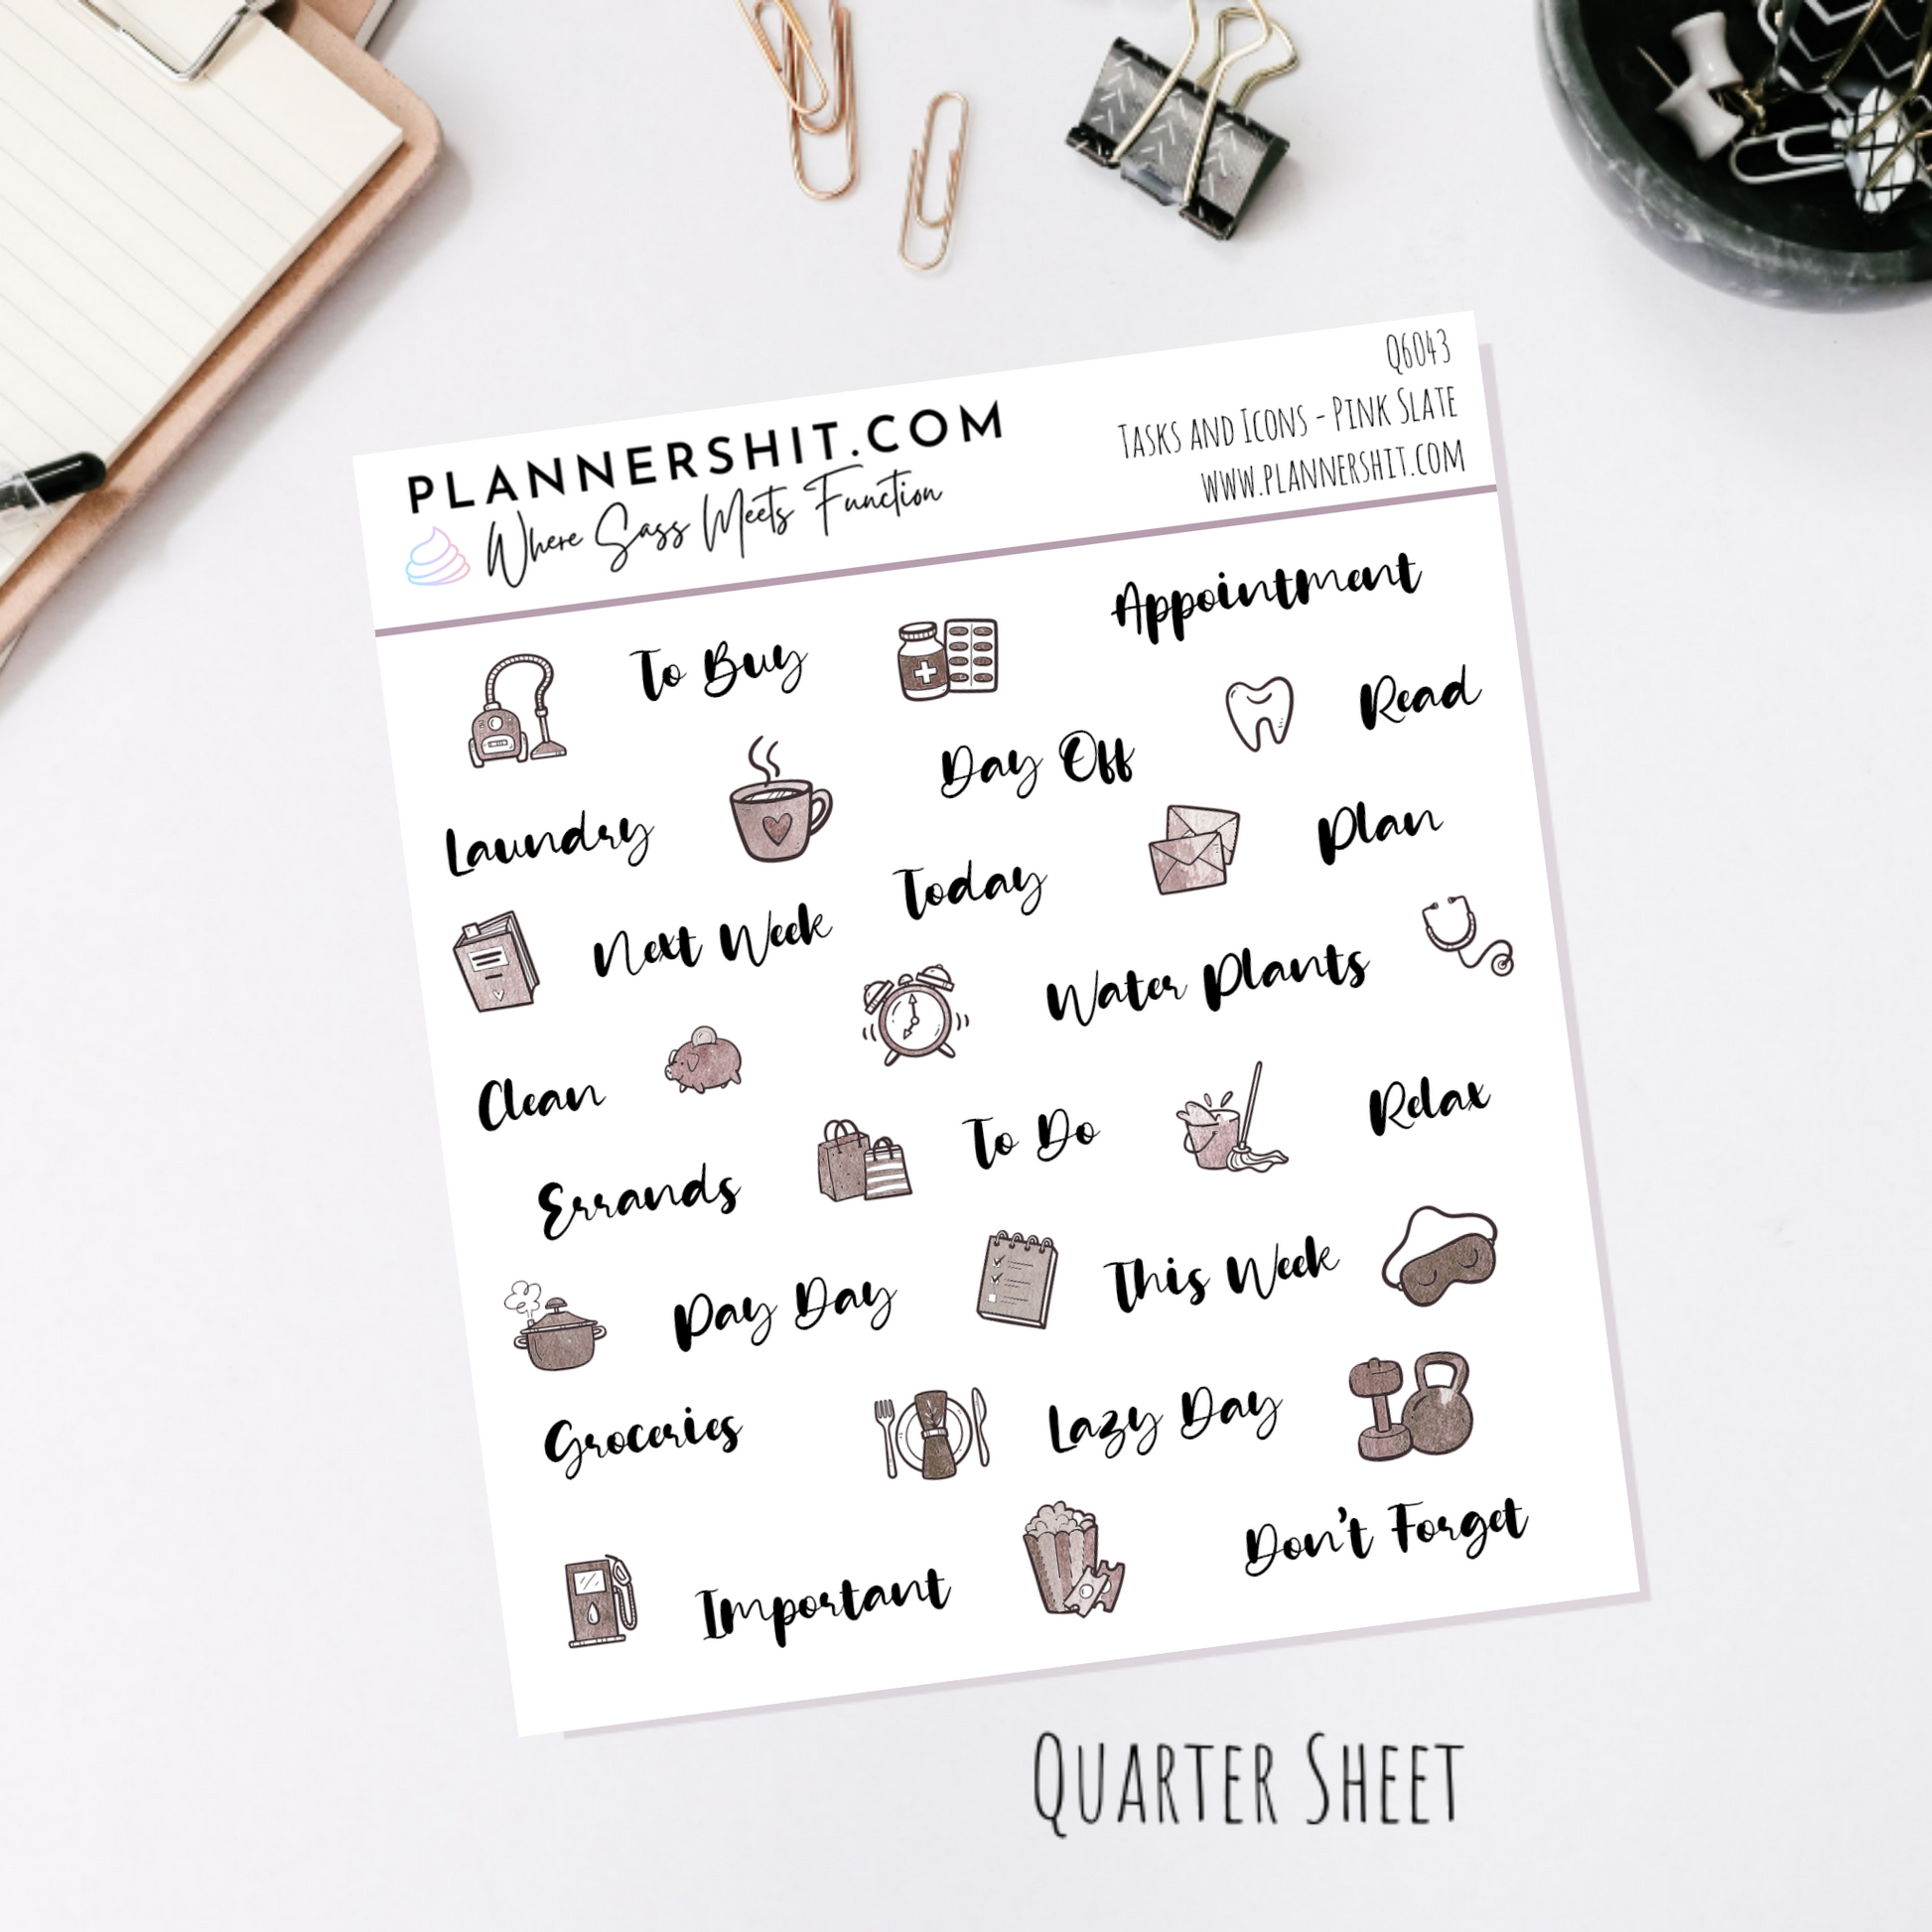 PLANNERSHIT.COM
Where Sass Meets Function
Q6043
Tasks and Icons - Pink Slate
www.plannershit.com
To Buy
Appointment
Read
Day Off
Laundry
Plan
Today
Next Week
Water Plants
Clean
To Do
Relax
Errands
This Week
Pay Day
Lazy Day
Groceries
Don't Forget
Important
Quarter Sheet